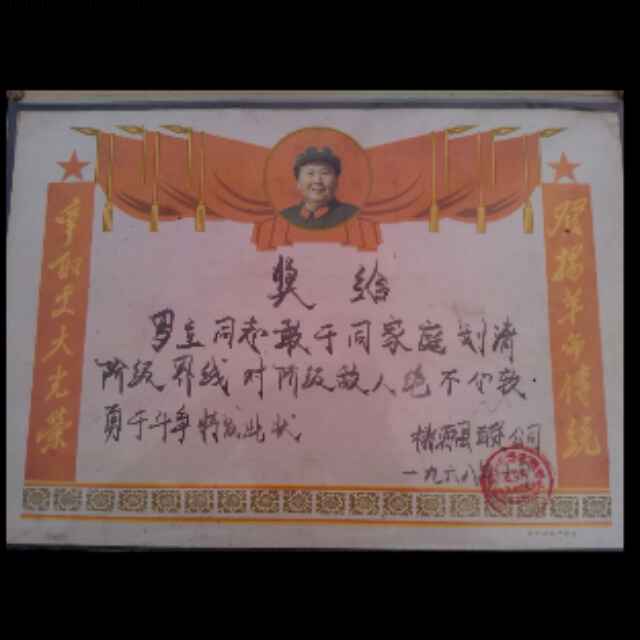 争取更大光荣
发扬革命传统
奖给
罗立同志敢于同家庭划清
阶级界线对阶级敌人绝不仁慈
勇于斗争特发此状
百货公司
一九六八